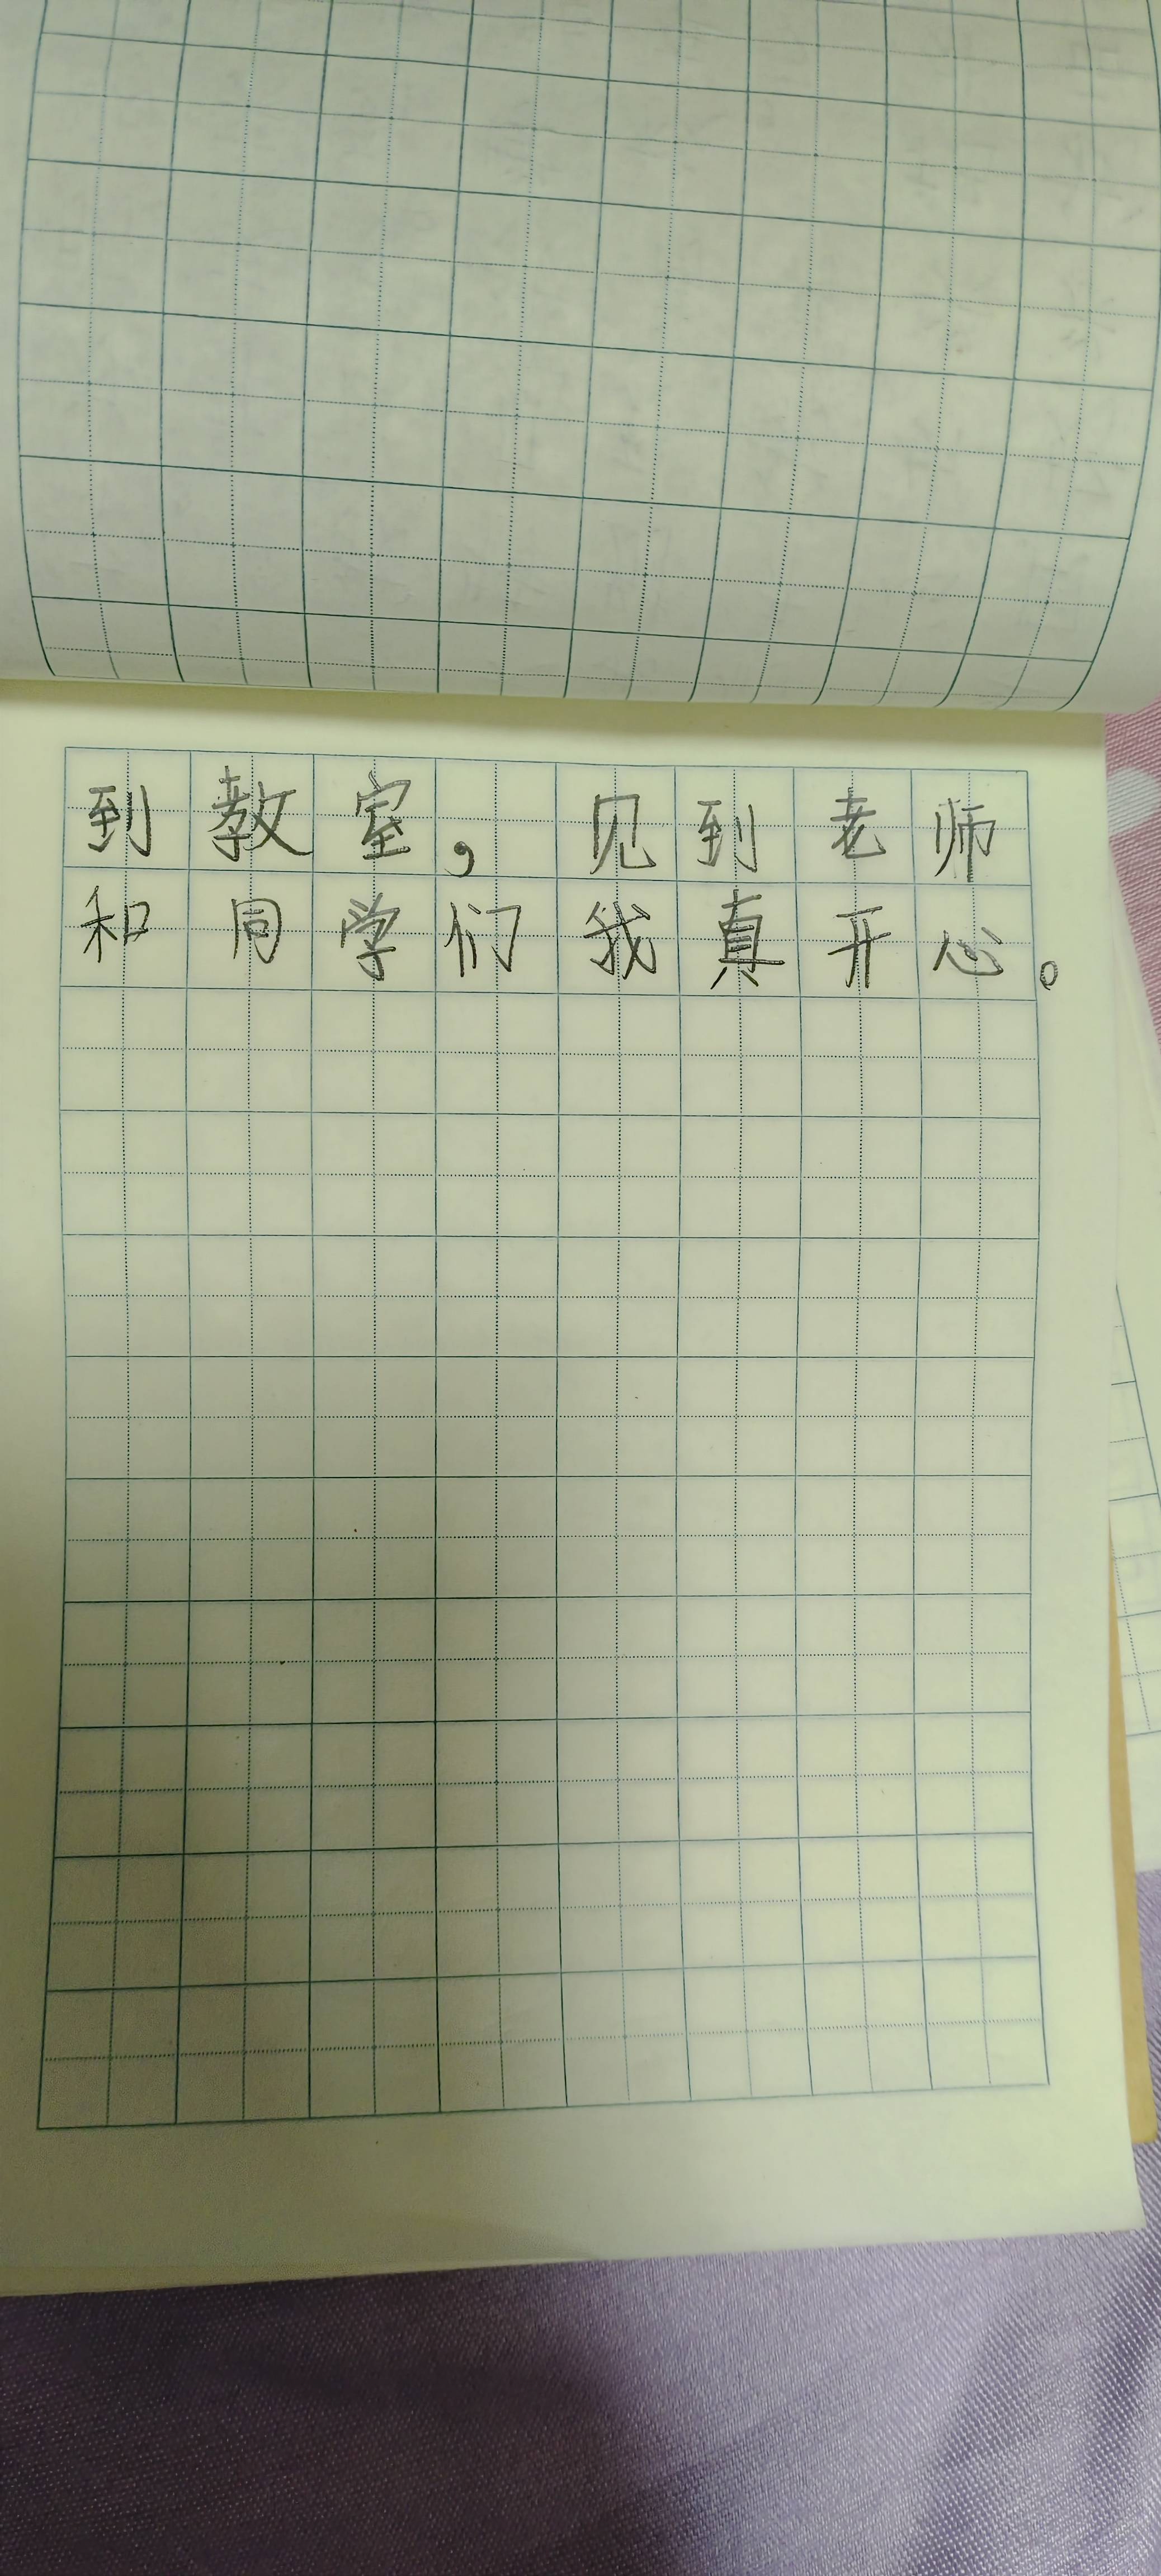 到教室，见到老师
和同学们我真开心。